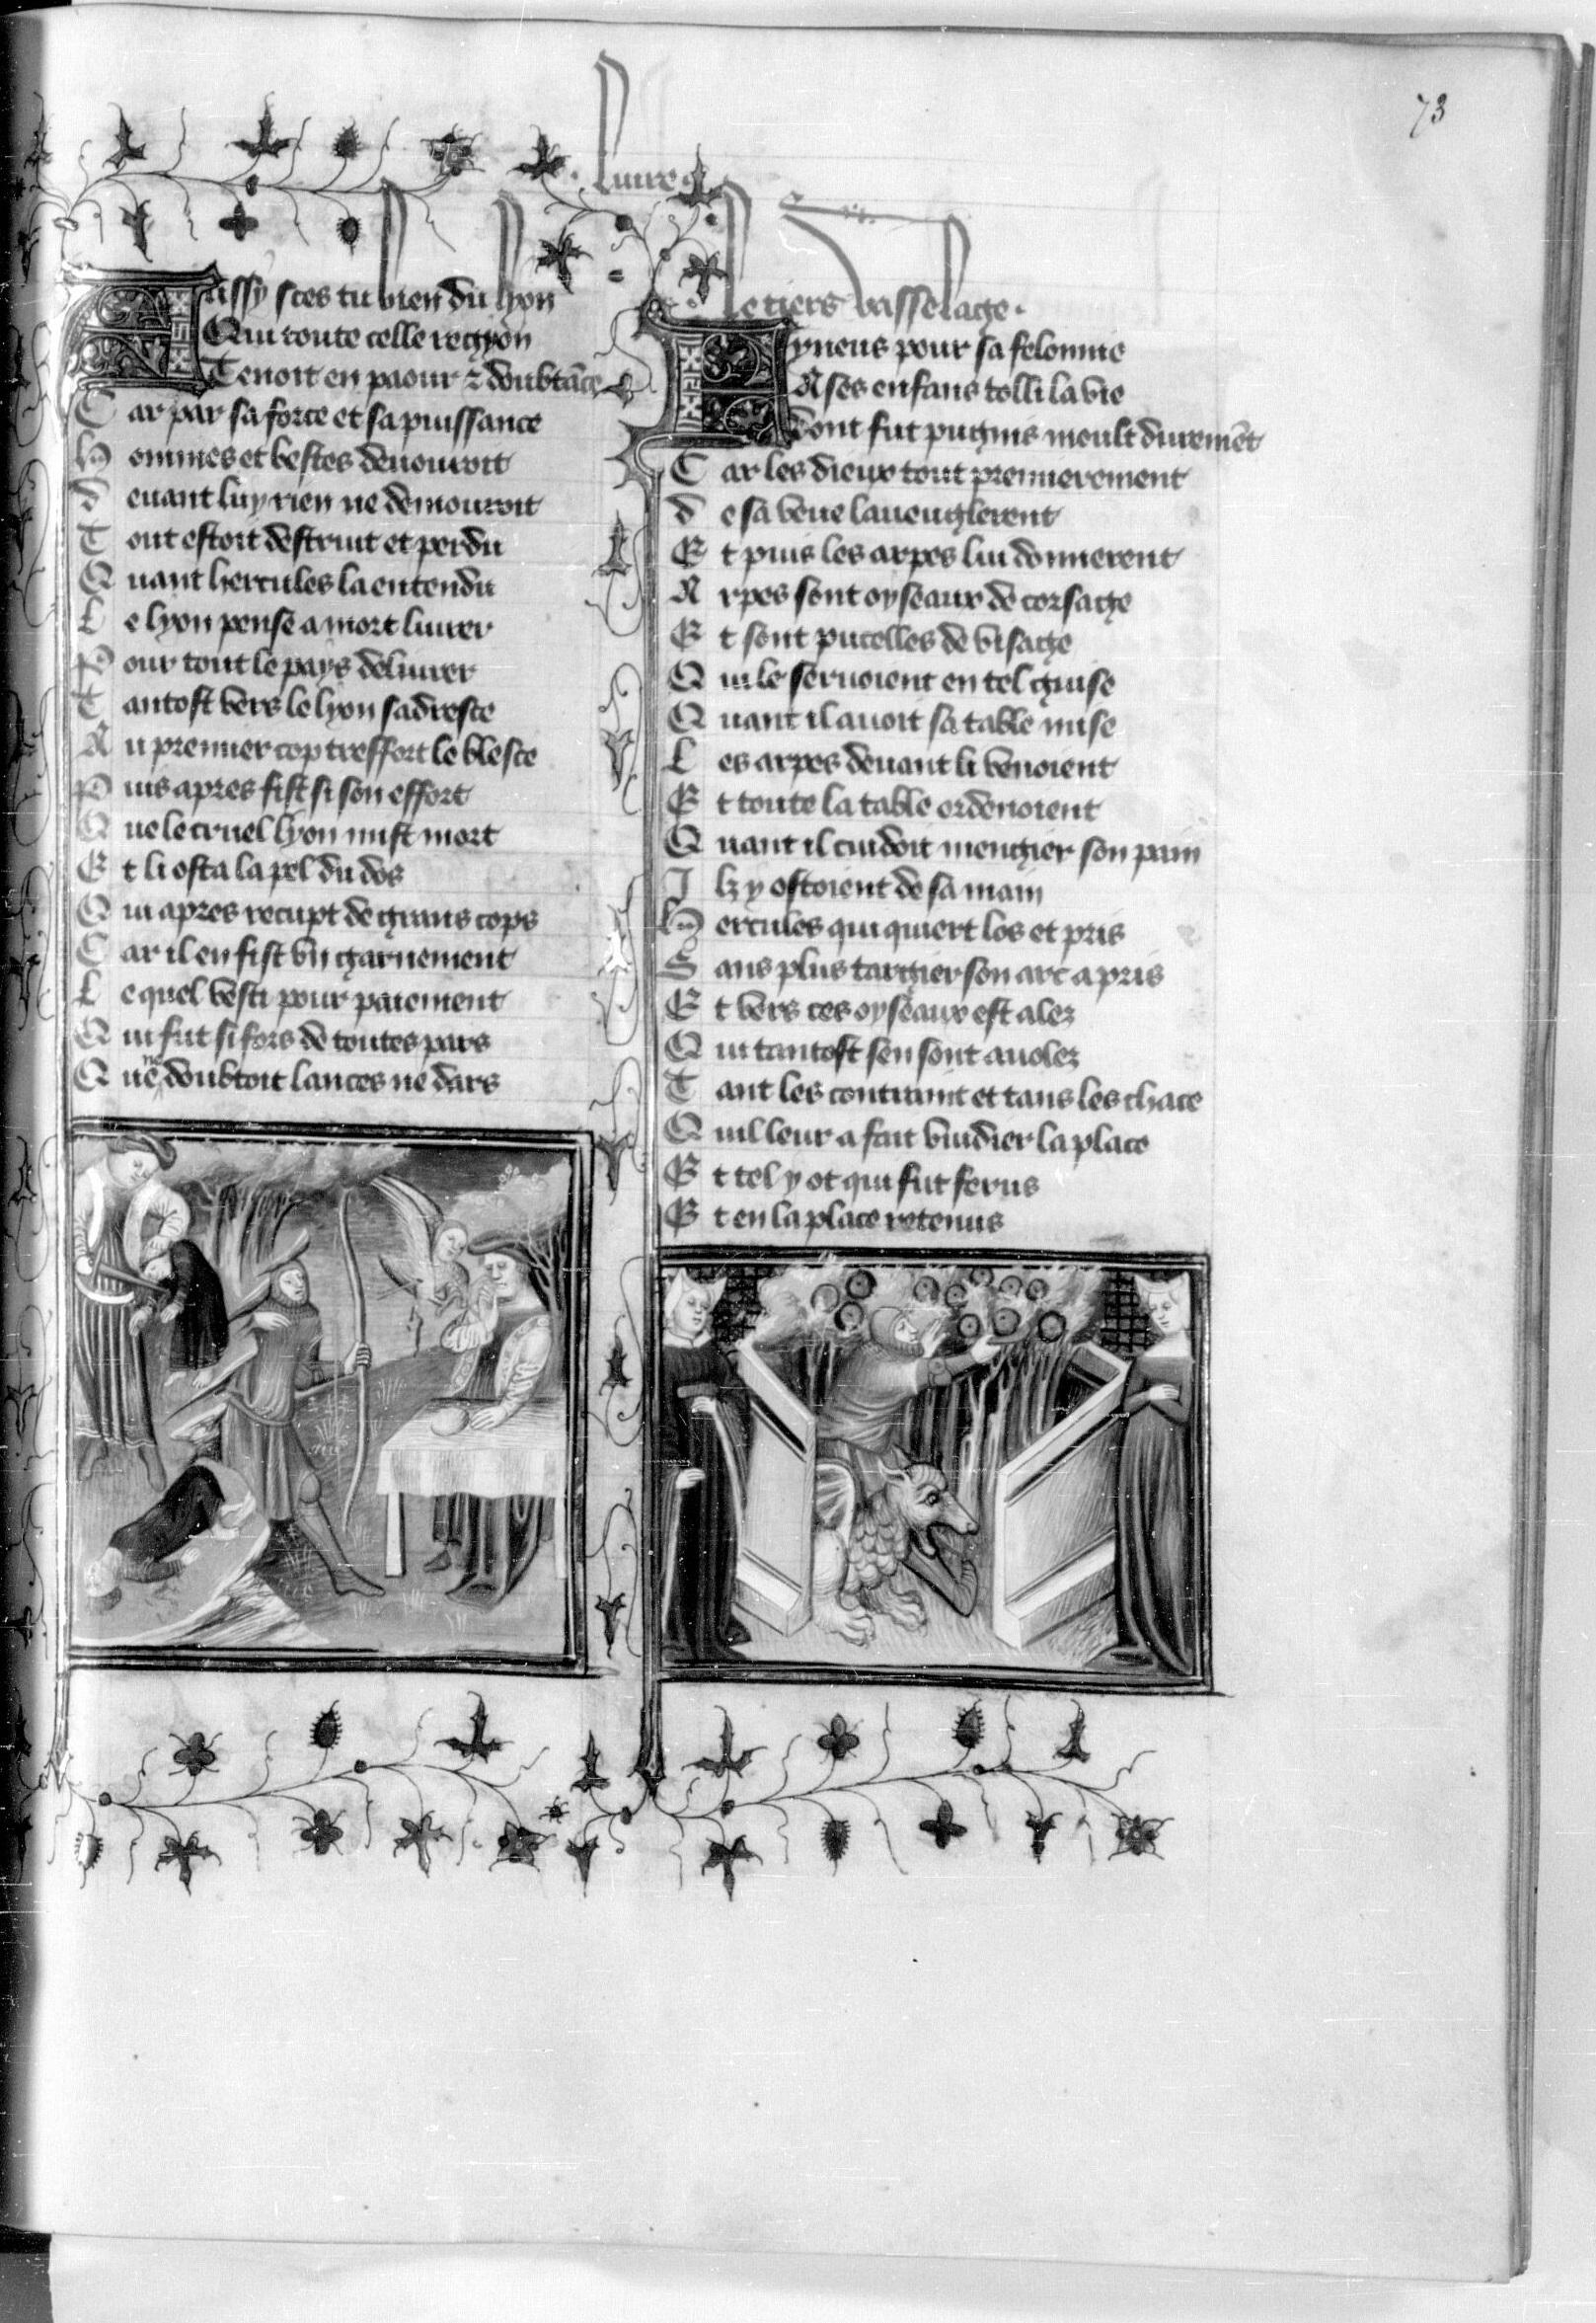 73
Liure
Aussy sces tu bien du lyon
Qui toute celle regyon
Tenoit en paour ⁊ doubtāce
Car par sa force et sa puissance
Hommes et bestes deuouroit
Deuant luy rien ne demouroit
Tout estoit destruit et perdu
Quant hercules la entendu
Le lyon pense a mort liurer
Pour tout le pays deliurer
Tantost vers le lyon sadresce
Au premier cop tresfort le blesce
Puis apres fist si son effort
Que le cruel lyon mist mort
Et li osta la pel du dos
Qui apres recupt de grans cops
Car il en fist vn garnement
Lequel vesti pour paiement
Qui fut si fors de toutes pars
Que ne doubtoit lances ne dars
Le tiers vasselage.
Fyneus pour sa felonnie
A ses enfans tolli la vie
Dont fut pugnis moult duremēt
Car les dieux tout premierement
De sa veue laueuglerent
Et puis les arpes lui donnerent
Arpes sont oyseaux de corsage
Et sont pucelles de visage
Qui le seruoient en tel guise
Quant il auoit sa table mise
Les arpes deuant li venoient
Et toute la table ordenoient
Quant il cuidoit mengier son pain
Ilz y ostoient de sa main
Hercules qui quiert los et pris
Sans plus targier son arc a pris
Et vers ces oyseaux est alez
Qui tantost sen sont auolez
Tant les contraint et tans les chace
Quil leur a fait vuidier la place
Et tel y ot qui fut ferus
Et en la place retenus